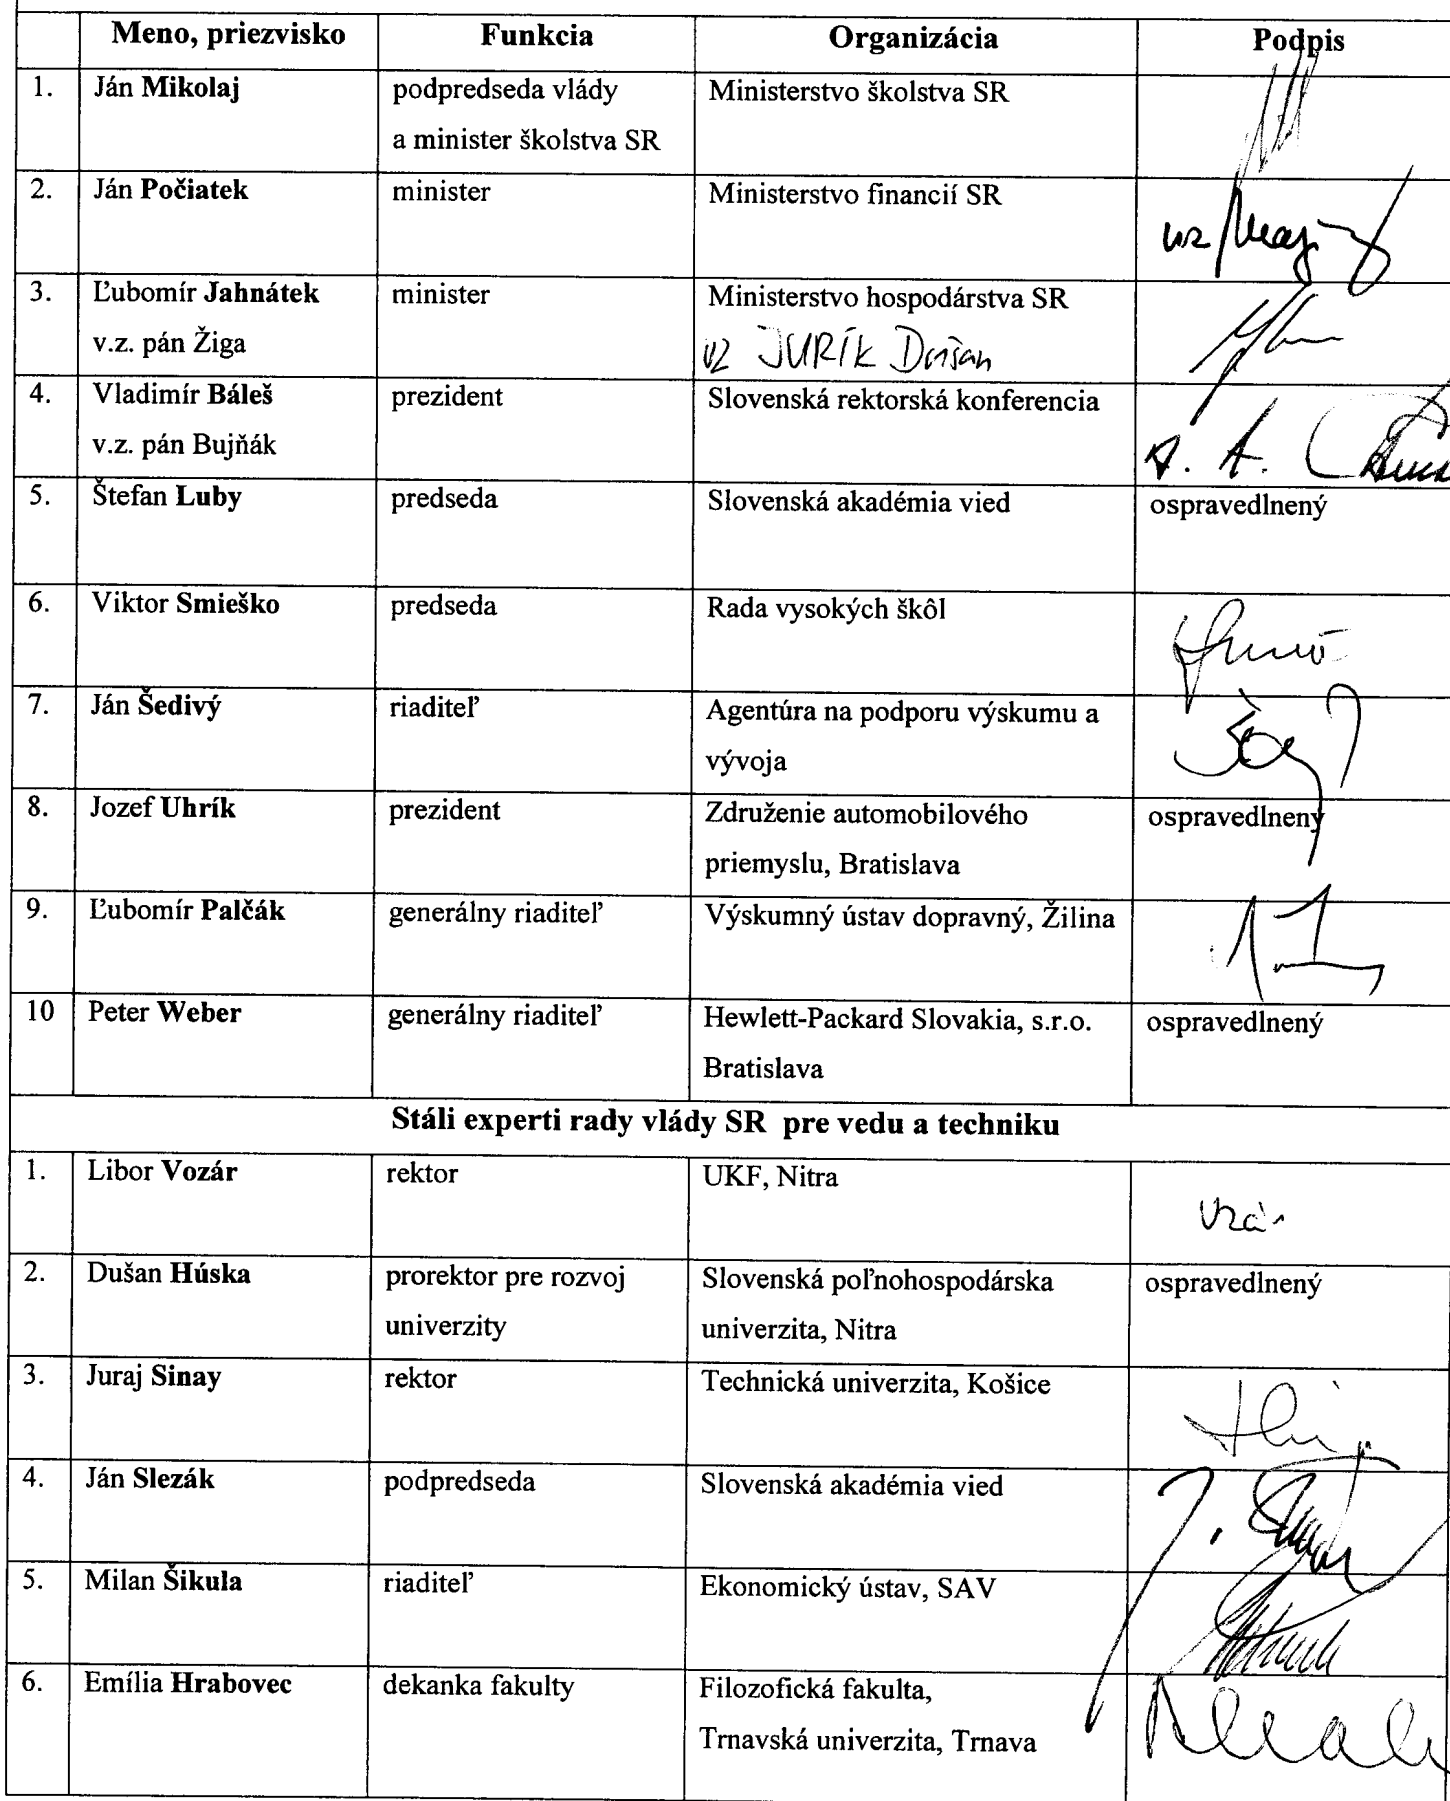 Meno, priezvisko Funkcia Organizácia Podpis
1. Ján Mikolaj podpredseda vlády Ministerstvo školstva SR
a minister školstva SR
2. Ján Počiatek minister Ministerstvo financií SR
3. Ľubomír Jahnátek minister Ministerstvo hospodárstva SR
v.z. pán Žiga vz JURÍK Dušan
4. Vladimír Báleš prezident Slovenská rektorská konferencia
v.z. pán Bujňák
5. Štefan Luby predseda Slovenská akadémia vied ospravedlnený
6. Viktor Smieško predseda Rada vysokých škôl
7. Ján Šedivý riaditeľ Agentúra na podporu výskumu a
vývoja
8. Jozef Uhrík prezident Združenie automobilového ospravedlnený
priemyslu, Bratislava
9. Ľubomír Palčák generálny riaditeľ Výskumný ústav dopravný, Žilina
10 Peter Weber generálny riaditeľ Hewlett-Packard Slovakia, s.r.o. ospravedlnený
Bratislava
Stáli experti rady vlády SR pre vedu a techniku
1. Libor Vozár rektor UKF, Nitra
2. Dušan Húska prorektor pre rozvoj Slovenská poľnohospodárska ospravedlnený
univerzity univerzita, Nitra
3. Juraj Sinay rektor Technická univerzita, Košice
4. Ján Slezák podpredseda Slovenská akadémia vied
5. Milan Šikula riaditeľ Ekonomický ústav, SAV
6. Emília Hrabovec dekanka fakulty Filozofická fakulta,
Trnavská univerzita, Trnava